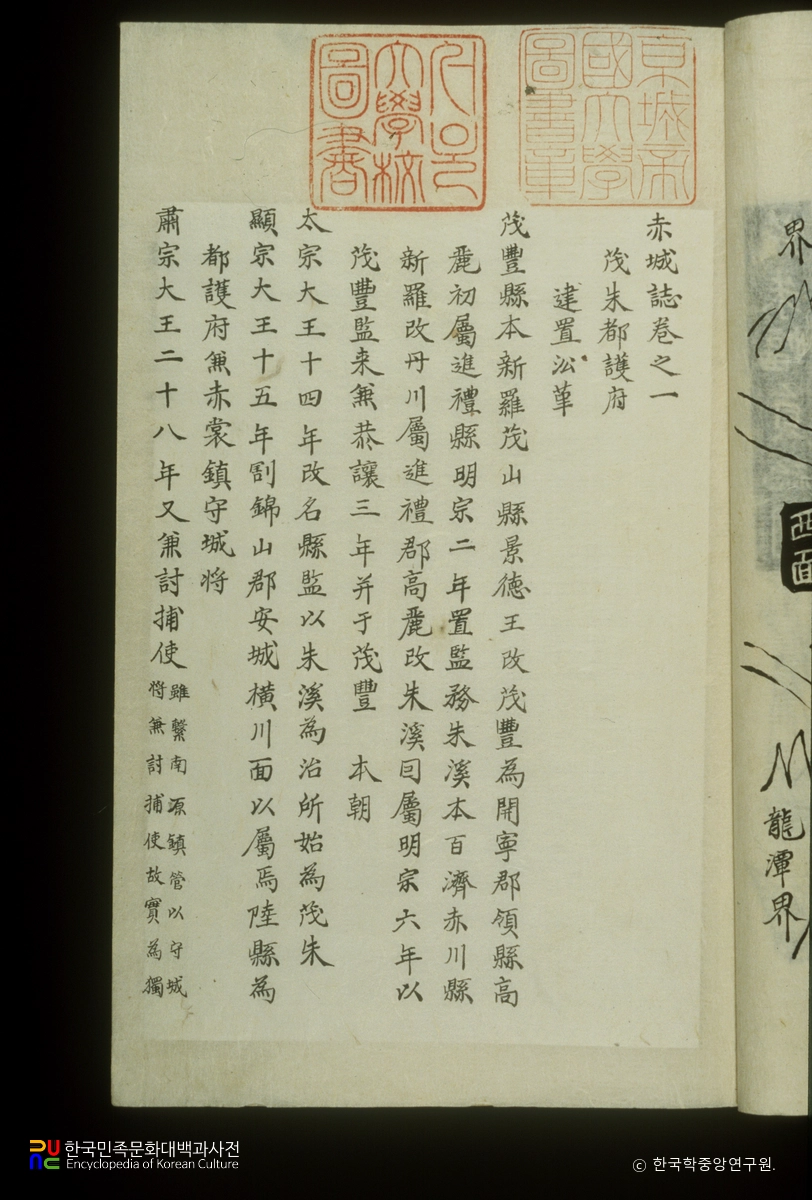 京城帝
國大學
圖書章
서울
大學校
圖書
赤城誌卷之一
茂朱都護府
建置沿革
茂豐縣本新羅茂山縣景德王改茂豐為開寧郡領縣高
麗初屬進禮縣明宗二年置監務朱溪本百濟赤川縣
新羅改丹川屬進禮郡高麗改朱溪囙屬明宗六年以
茂豐監来兼恭讓三年并于茂豐 本朝
太宗大王十四年改名縣監以朱溪為治所始為茂朱
顯宗大王十五年割錦山郡安城橫川面以屬焉陸縣為
都護府兼赤裳鎮守城将
肅宗大王二十八年又兼討捕使
雖繫南源鎮管以守城
将兼討捕使故實為獨
界
西面
龍潭界
한국민족문화대백과사전
Encyclopedia of Korean Culture
ⓒ 한국학중앙연구원.